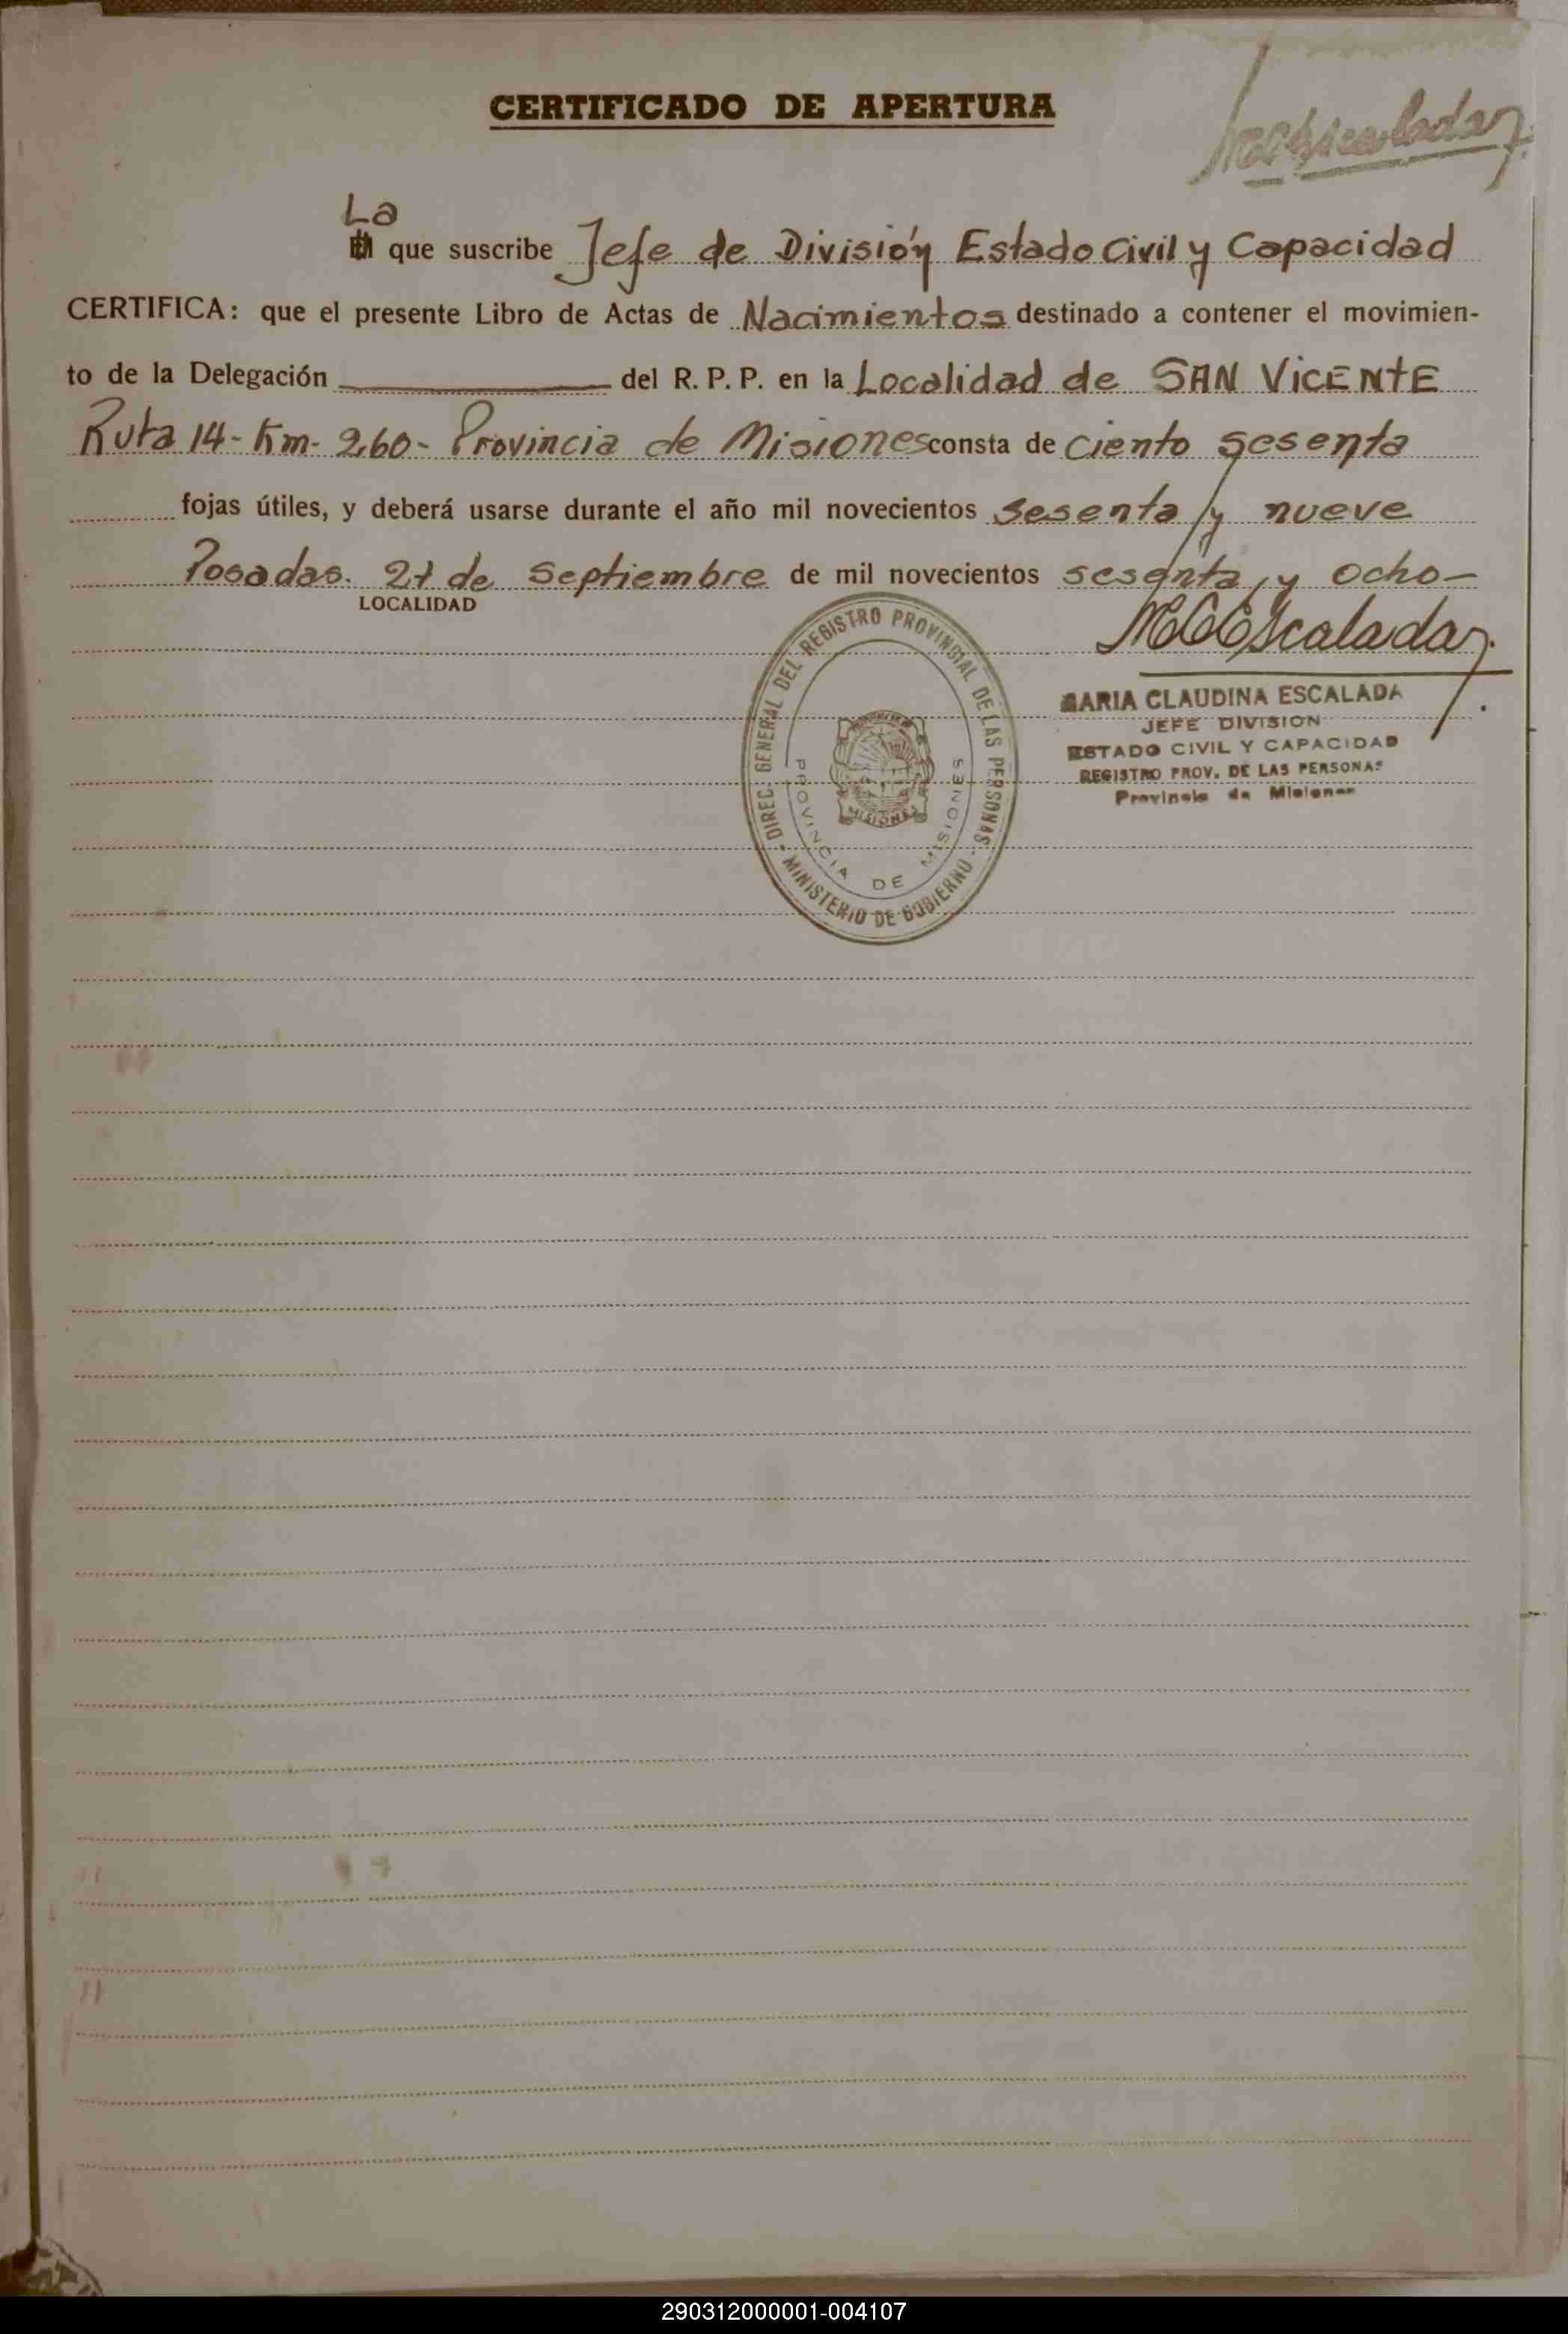 CERTIFICADO DE APERTURA
MCEscalada
La
El que suscribe Jefe de División Estado Civil y Capacidad
CERTIFICA: que el presente Libro de Actas de Nacimientos destinado a contener el movimien-
to de la Delegación del R. P. P. en la Localidad de SAN VICENTE
Ruta 14- Km- 260- Provincia de Misiones consta de ciento sesenta
fojas útiles, y deberá usarse durante el año mil novecientos sesenta y nueve
Posadas. de Septiembre de mil novecientos sesenta y ocho-
LOCALIDAD
MCEscalada
DIREC. GENERAL DEL REGISTRO PROVINCIAL DE LAS PERSONAS - MINISTERIO DE GOBIERNO -
PROVINCIA DE MISIONES
MISIONES
MARIA CLAUDINA ESCALADA
JEFE DIVISION
ESTADO CIVIL Y CAPACIDAD
REGISTRO PROV. DE LAS PERSONAS
Provincia de Misiones
290312000001-004107